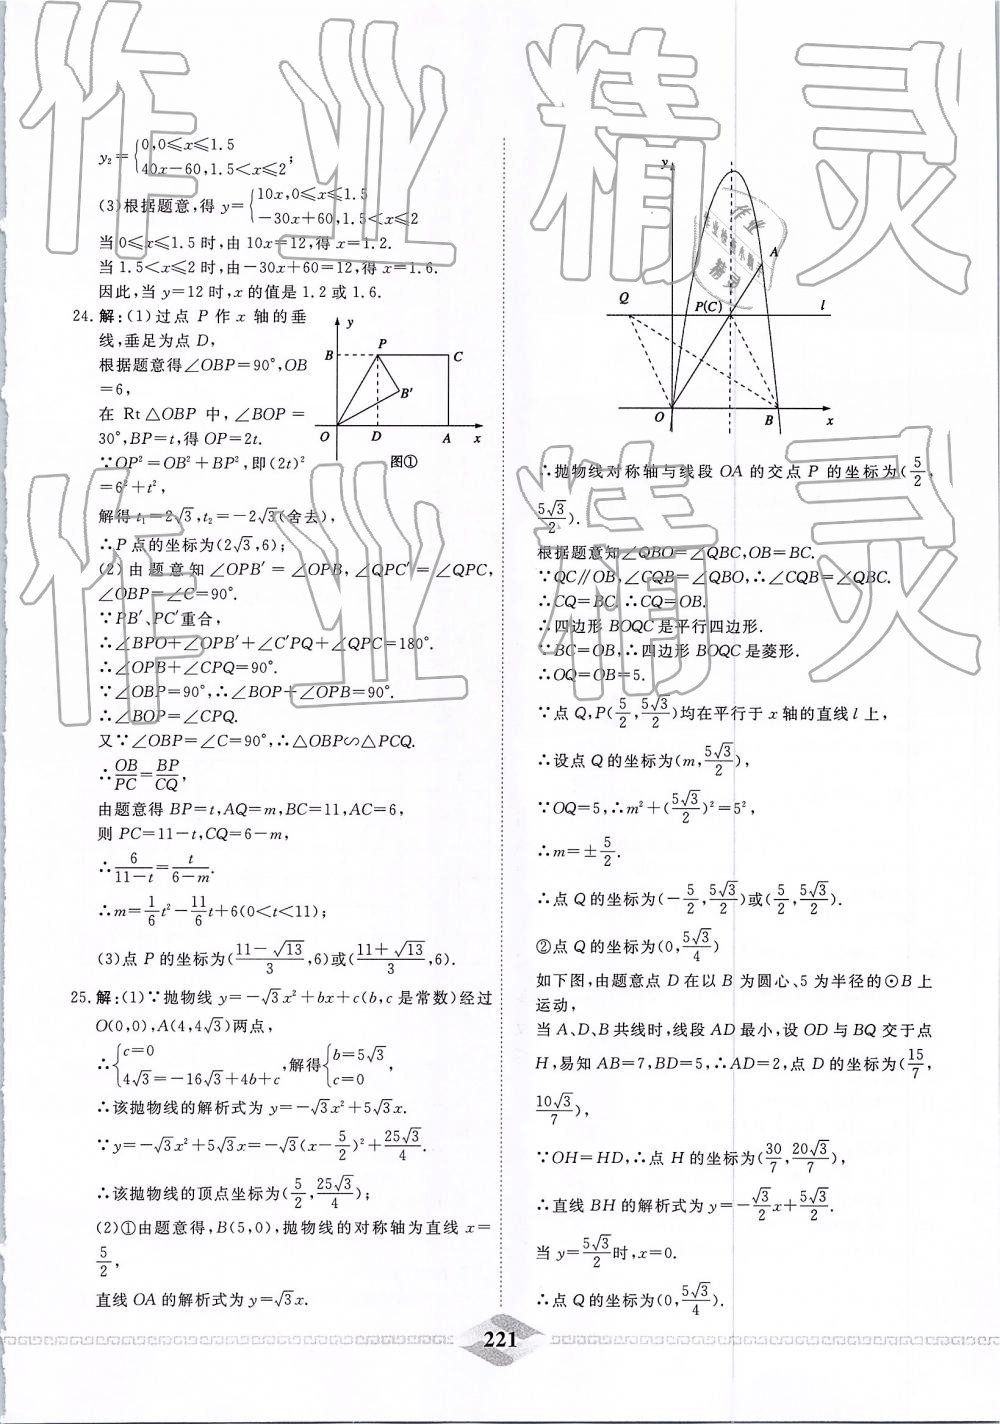 y₂={0,0≤x≤1.5
40x−60,1.5<x≤2;
(3)根据题意,得 y={10x,0≤x≤1.5
−30x+60,1.5<x≤2
当 0≤x≤1.5 时,由 10x=12,得 x=1.2.
当 1.5<x≤2 时,由−30x+60=12,得 x=1.6.
因此,当 y=12 时,x 的值是 1.2 或 1.6.
24.解:(1)过点 P 作 x 轴的垂
线,垂足为点 D,
根据题意得∠OBP=90°,OB
=6,
在 Rt△OBP 中,∠BOP=
30°,BP=t,得 OP=2t.
∵OP²=OB²+BP²,即(2t)²
=6²+t²,
解得 t₁=2√3,t₂=−2√3(舍去),
∴P 点的坐标为(2√3,6);
y
B
P
C
B′
O
D
A
x
图①
(2)由题意知∠OPB′=∠OPB,∠QPC′=∠QPC,
∠OBP=∠C=90°.
∵PB′、PC′重合,
∴∠BPO+∠OPB′+∠C′PQ+∠QPC=180°.
∴∠OPB+∠CPQ=90°.
∵∠OBP=90°,∴∠BOP+∠OPB=90°.
∴∠BOP=∠CPQ.
又∵∠OBP=∠C=90°,∴△OBP∽△PCQ.
∴OB/PC=BP/CQ,
由题意得 BP=t,AQ=m,BC=11,AC=6,
则 PC=11−t,CQ=6−m,
∴6/(11−t)=t/(6−m).
∴m=1/6t²−11/6t+6(0<t<11);
(3)点 P 的坐标为((11−√13)/3,6)或((11+√13)/3,6).
25.解:(1)∵抛物线 y=−√3x²+bx+c(b,c 是常数)经过
O(0,0),A(4,4√3)两点,
∴{c=0
4√3=−16√3+4b+c,解得{b=5√3
c=0,
∴该抛物线的解析式为 y=−√3x²+5√3x.
∵y=−√3x²+5√3x=−√3(x−5/2)²+25√3/4.
∴该抛物线的顶点坐标为(5/2,25√3/4);
(2)①由题意得,B(5,0),抛物线的对称轴为直线 x=
5/2,
直线 OA 的解析式为 y=√3x.
y
A
Q
P(C)
l
O
B
x
∴抛物线对称轴与线段 OA 的交点 P 的坐标为(5/2,
5√3/2).
根据题意知∠QBO=∠QBC,OB=BC.
∵QC∥OB,∠CQB=∠QBO,∴∠CQB=∠QBC.
∴CQ=BC.∴CQ=OB.
∴四边形 BOQC 是平行四边形.
∵BC=OB,∴四边形 BOQC 是菱形.
∴OQ=OB=5.
∵点 Q,P(5/2,5√3/2)均在平行于 x 轴的直线 l 上,
∴设点 Q 的坐标为(m,5√3/2),
∵OQ=5,∴m²+(5√3/2)²=5²,
∴m=±5/2.
∴点 Q 的坐标为(−5/2,5√3/2)或(5/2,5√3/2).
②点 Q 的坐标为(0,5√3/4)
如下图,由题意点 D 在以 B 为圆心、5 为半径的⊙B 上
运动,
当 A、D、B 共线时,线段 AD 最小,设 OD 与 BQ 交于点
H,易知 AB=7,BD=5,∴AD=2,点 D 的坐标为(15/7,
10√3/7),
∵OH=HD,∴点 H 的坐标为(30/7,20√3/7),
∴直线 BH 的解析式为 y=−√3/2x+5√3/2.
当 y=5√3/2时,x=0.
∴点 Q 的坐标为(0,5√3/4).
221
作业精灵
作业精灵